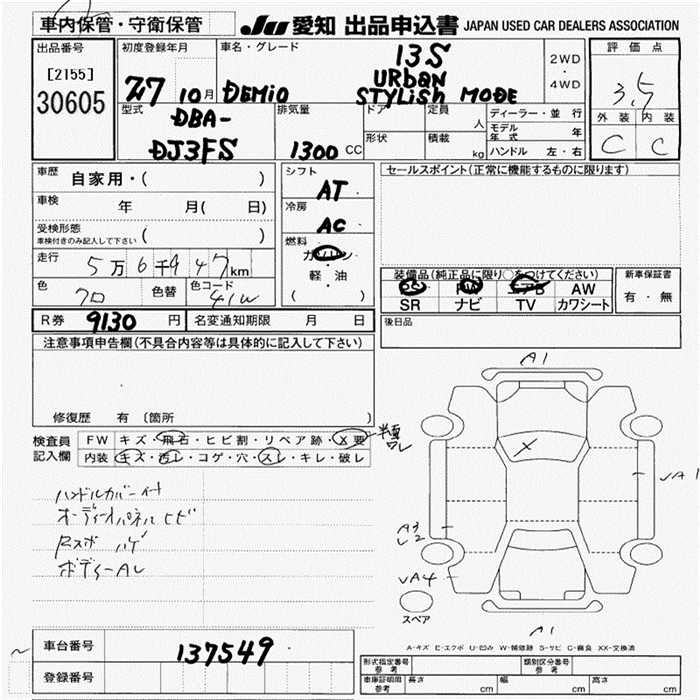 車内保管・守衛保管
JU 愛知 出品申込書 JAPAN USED CAR DEALERS ASSOCIATION
出品番号
[2155]
30605
初度登録年月
27 10月
車名・グレード
DEMIO 13S
URBAN
STYLISH MODE
2WD
・
4WD
評価点
3.5
外装 内装
C C
型式
DBA-
DJ3FS
排気量
1300 CC
ドア
形状
定員 人
積載 kg
ディーラー・並行
モデル年式 年
ハンドル 左・右
車歴 自家用・( )
車検 年 月( 日)
受検形態
車検付きのみ記入して下さい ( )
走行 5万6千947km
色 クロ 色替 色コード 41W
シフト
AT
冷房
AC
燃料
ガソリン
軽・油
( )
セールスポイント(正常に機能するものに限ります)
装備品(純正品に限り○をつけてください)
PS PW エアB AW
SR ナビ TV カワシート
新車保証書
有・無
後日品
R券 9130 円 名変通知期限 月 日
注意事項申告欄(不具合内容等は具体的に記入して下さい)
修復歴 有 〔箇所 〕
検査員
記入欄
FW キズ・飛石・ヒビ割・リペア跡・X要
内装 キズ・汚レ・コゲ・穴・スレ・キレ・破レ
ハンドルカバー付
オーディオパネルヒビ
Rスポ ハゲ
ボディーAレ
A1
X
A1
A3
A4
A1
スペア
A-キズ E-エクボ U-凹み W-補修跡 S-サビ C-腐食 XX-交換済
車台番号 137549
登録番号
形式指定番号
参考
類別区分番号
参考
車庫証明用
参考
長さ cm 幅 cm 高さ cm